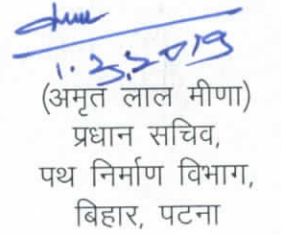 1.3.2019
(अमृत लाल मीणा)
प्रधान सचिव,
पथ निर्माण विभाग,
बिहार, पटना